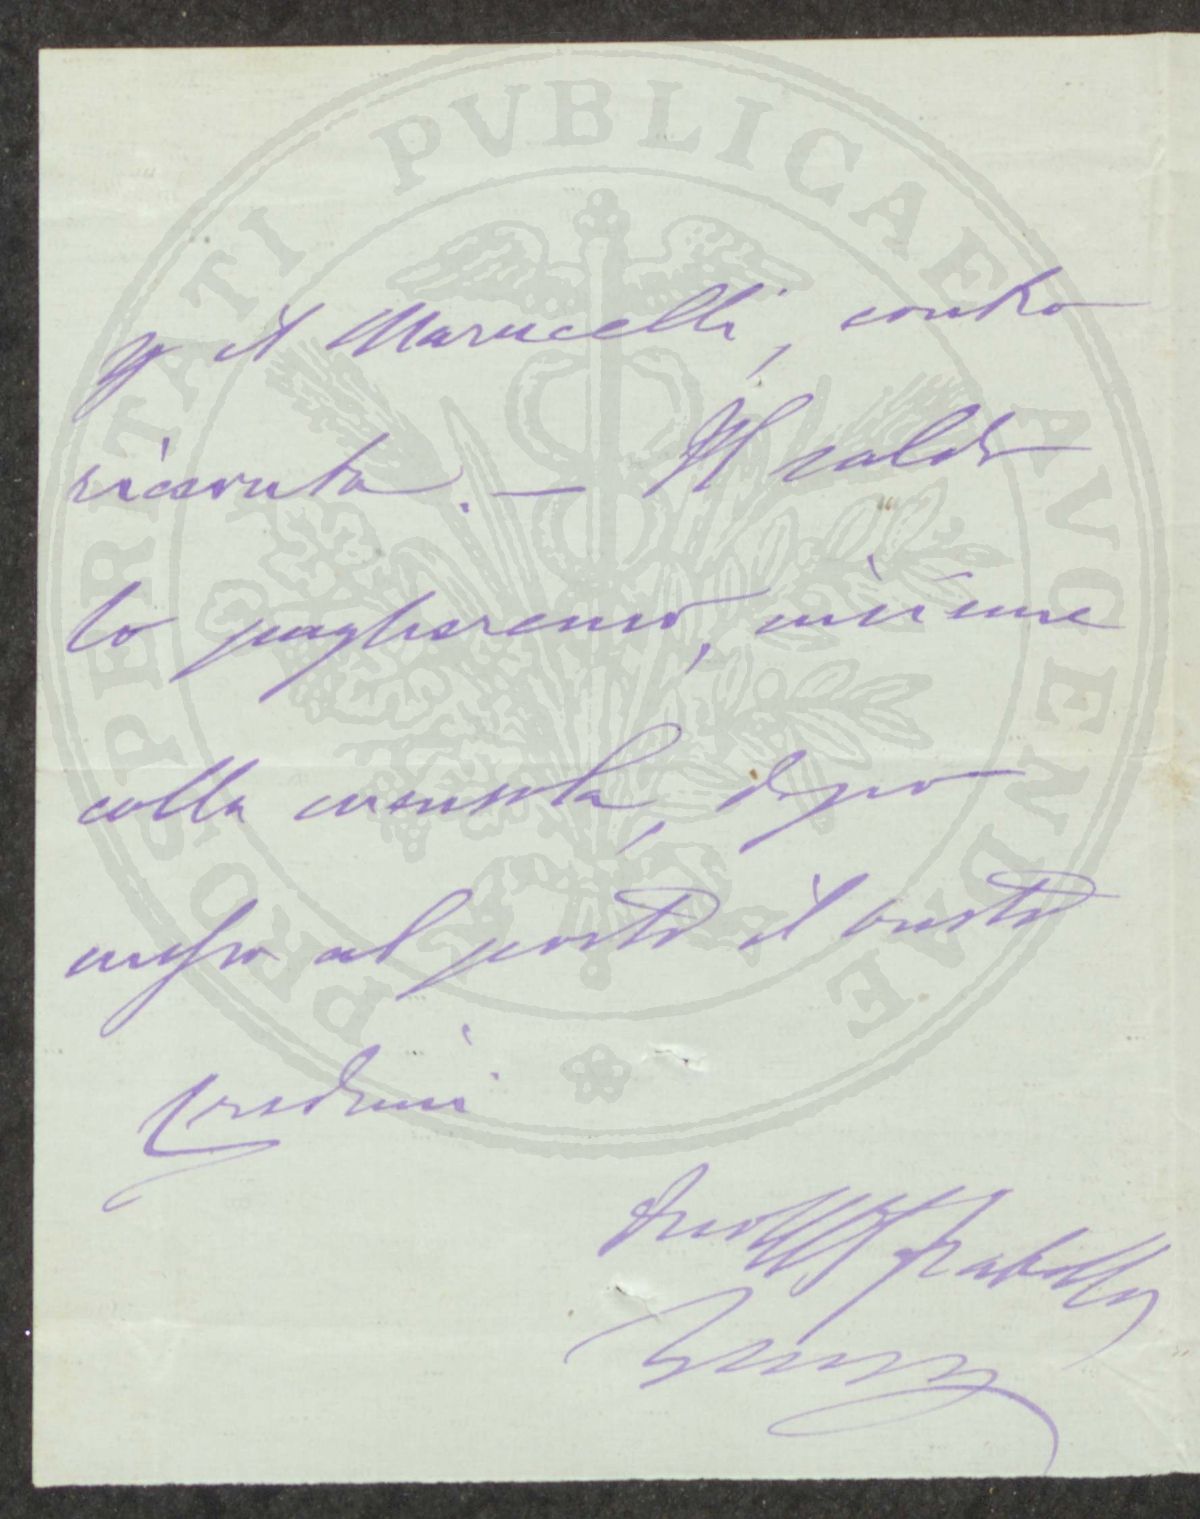 PROSPERITATI PVBLICAE AVGENDAE
p il Marucelli, contro
ricevuta. — Il saldo
lo pagheremo, insieme
colla mensola, dopo
messo al posto il busto
Credimi